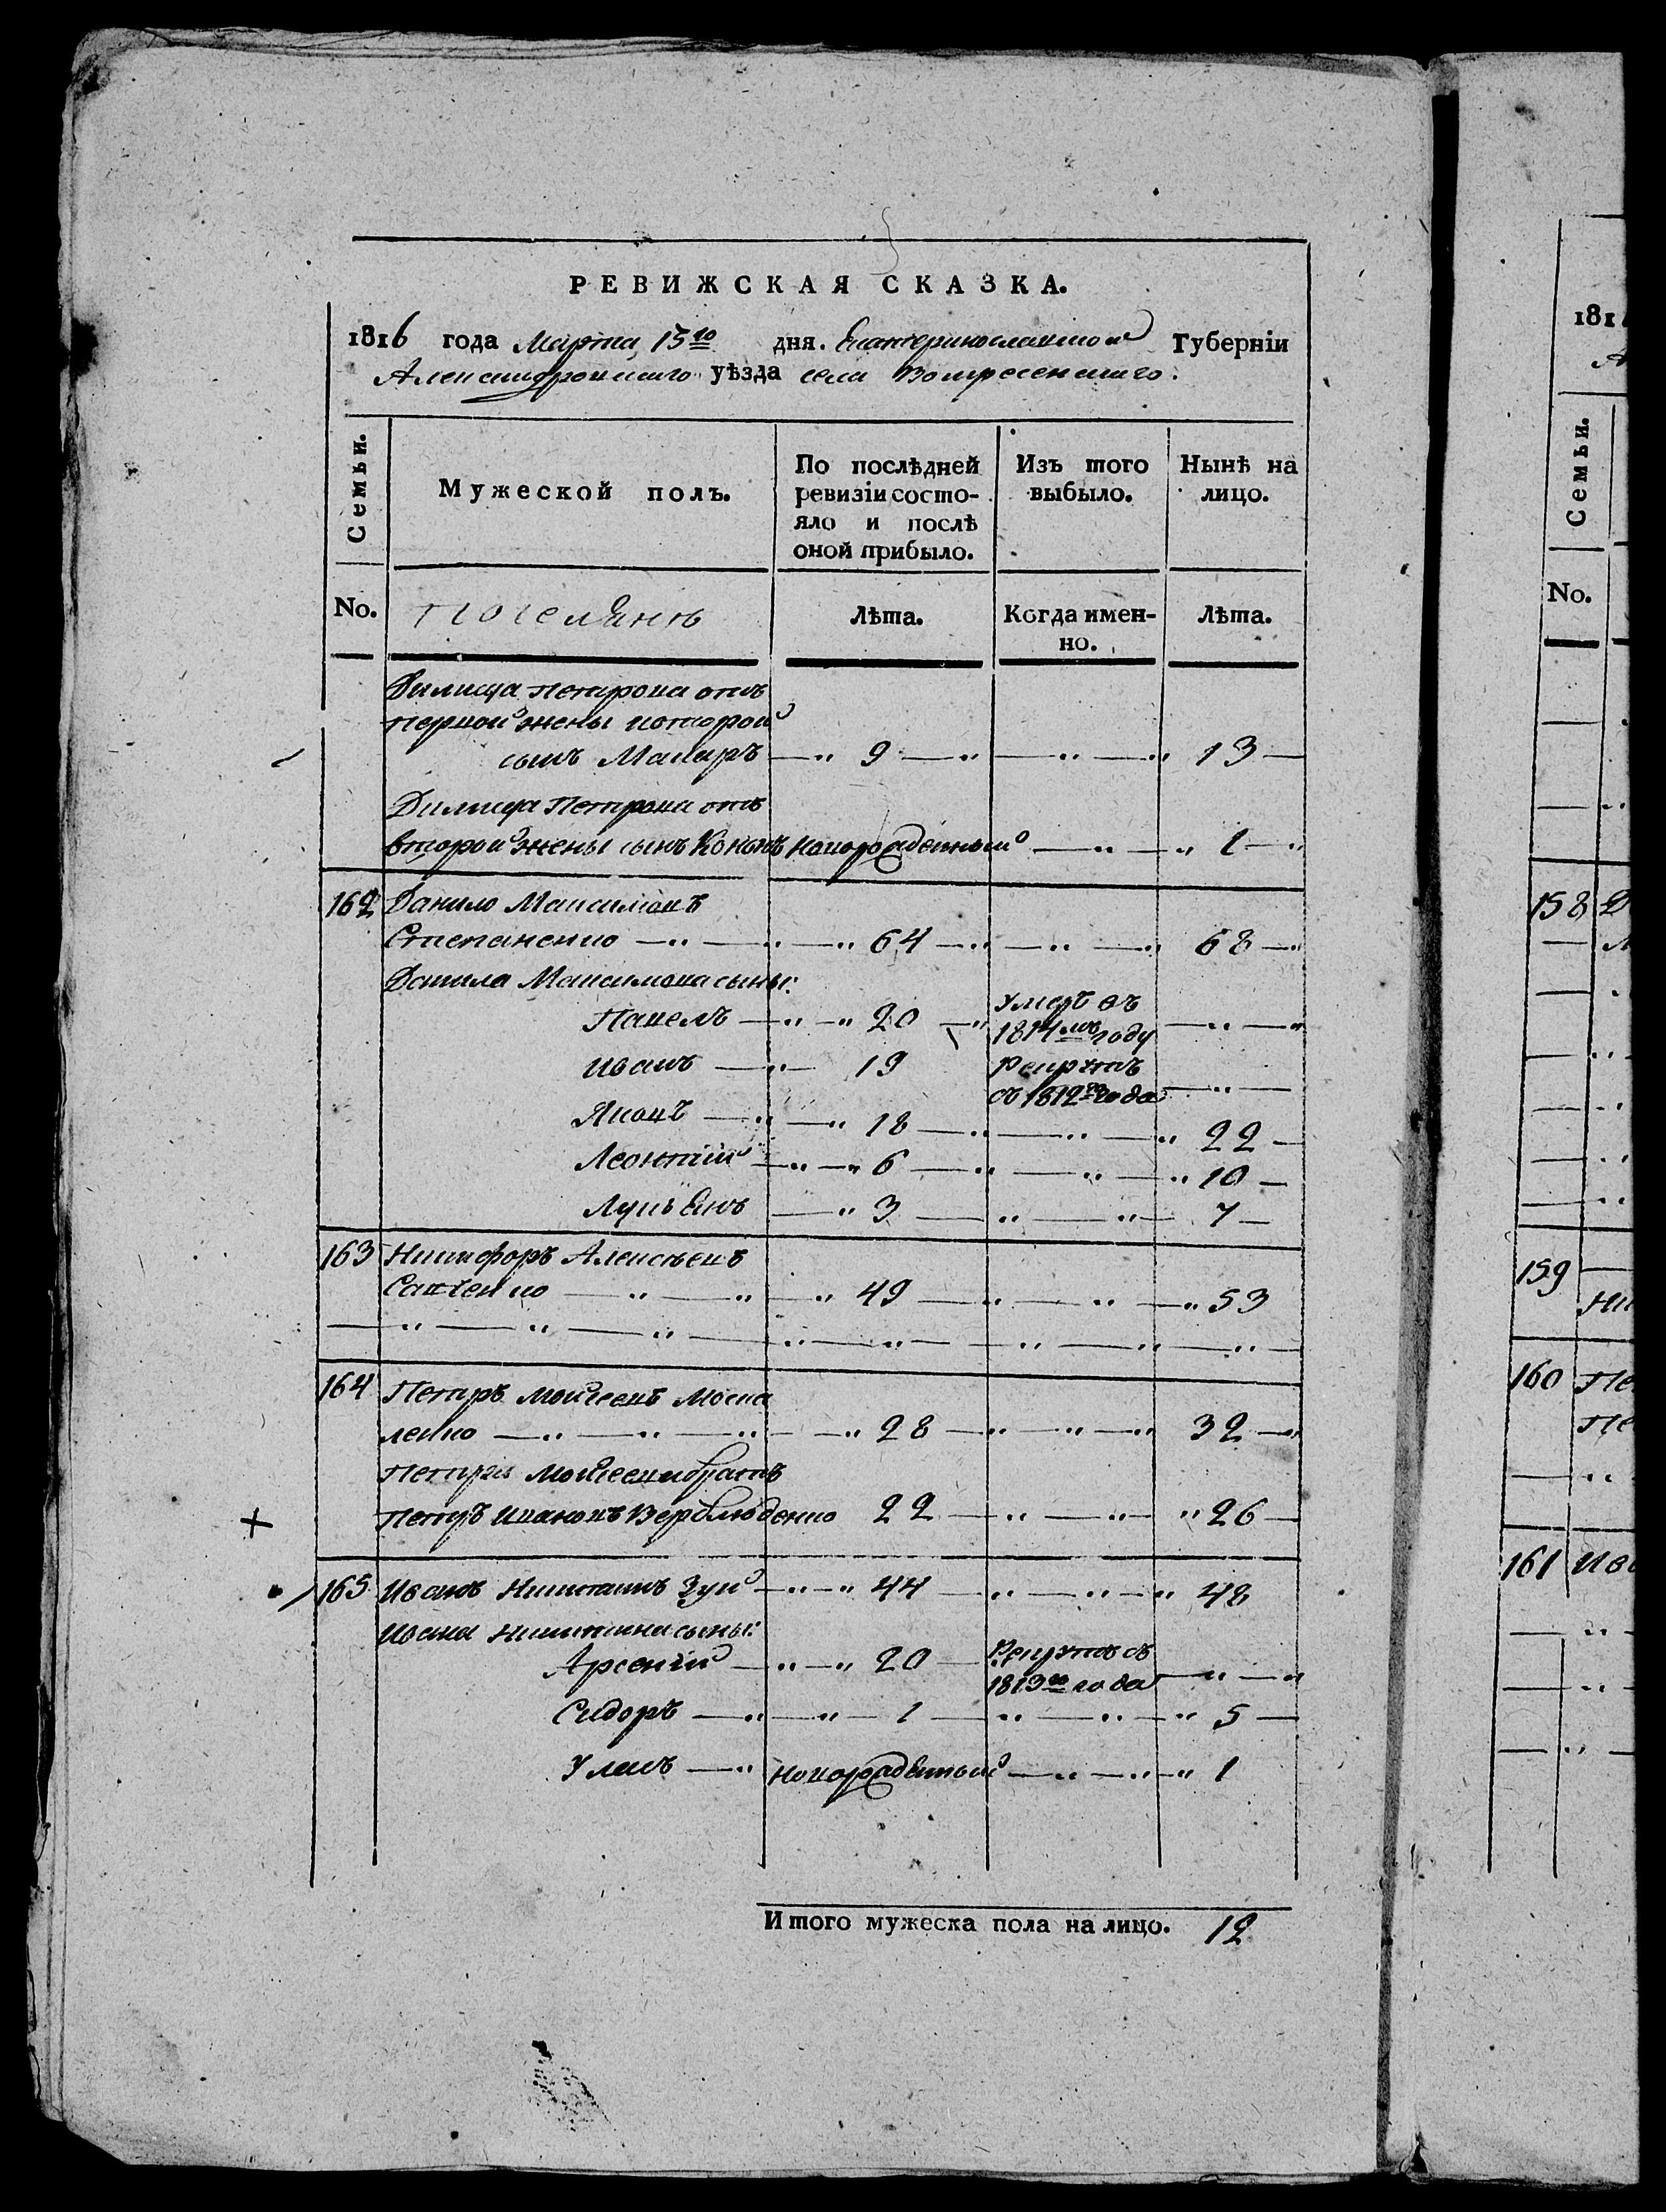 РЕВИЖСКАЯ СКАЗКА.
1816 года Марта 15го дня. Екатеринославской Губерніи
Александровскаго уѣзда села Воскресенскаго.
Семьи.
Мужеской полъ.
По послѣдней ревизіи состо-
яло и послѣ
оной прибыло.
Изъ того
выбыло.
Нынѣ на
лицо.
No.
Поселянъ
Лѣта.
Когда имен-
но.
Лѣта.
Петрова отъ
первой жены второй
сынъ Макаръ 9 13
Петрова отъ
второй жены сынъ Кононъ новорожденный 1
162 Данило Максимовъ
Степаненко 64 68
Данила Максимова сыны:
Павелъ 20 умеръ въ 1814мъ году
Иванъ 19 Рекрутъ съ 1812го года
Яковъ 18 22
Леонтий 6 10
Лукьянъ 3 7
163 Никифоръ Алексѣевъ
Савченко 49 53
164 Петръ Мойсеевъ Моска
ленко 28 32
Петра Мойсеева братъ
Петръ Ивановъ Верблюденко 22 26
165 Иванъ Никитинъ Зуй 44 48
Ивана Никитина сыны:
Арсений 20 Рекрутъ съ 1813го года
Сидоръ 1 5
Уласъ новорожденный 1
Итого мужеска пола на лицо. 12
181
Семьи.
No.
158
159
160
161